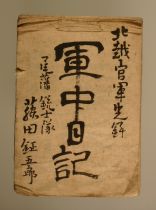 北越官軍先鋒
軍中日記
藩銃士隊
藤田鉦五郎